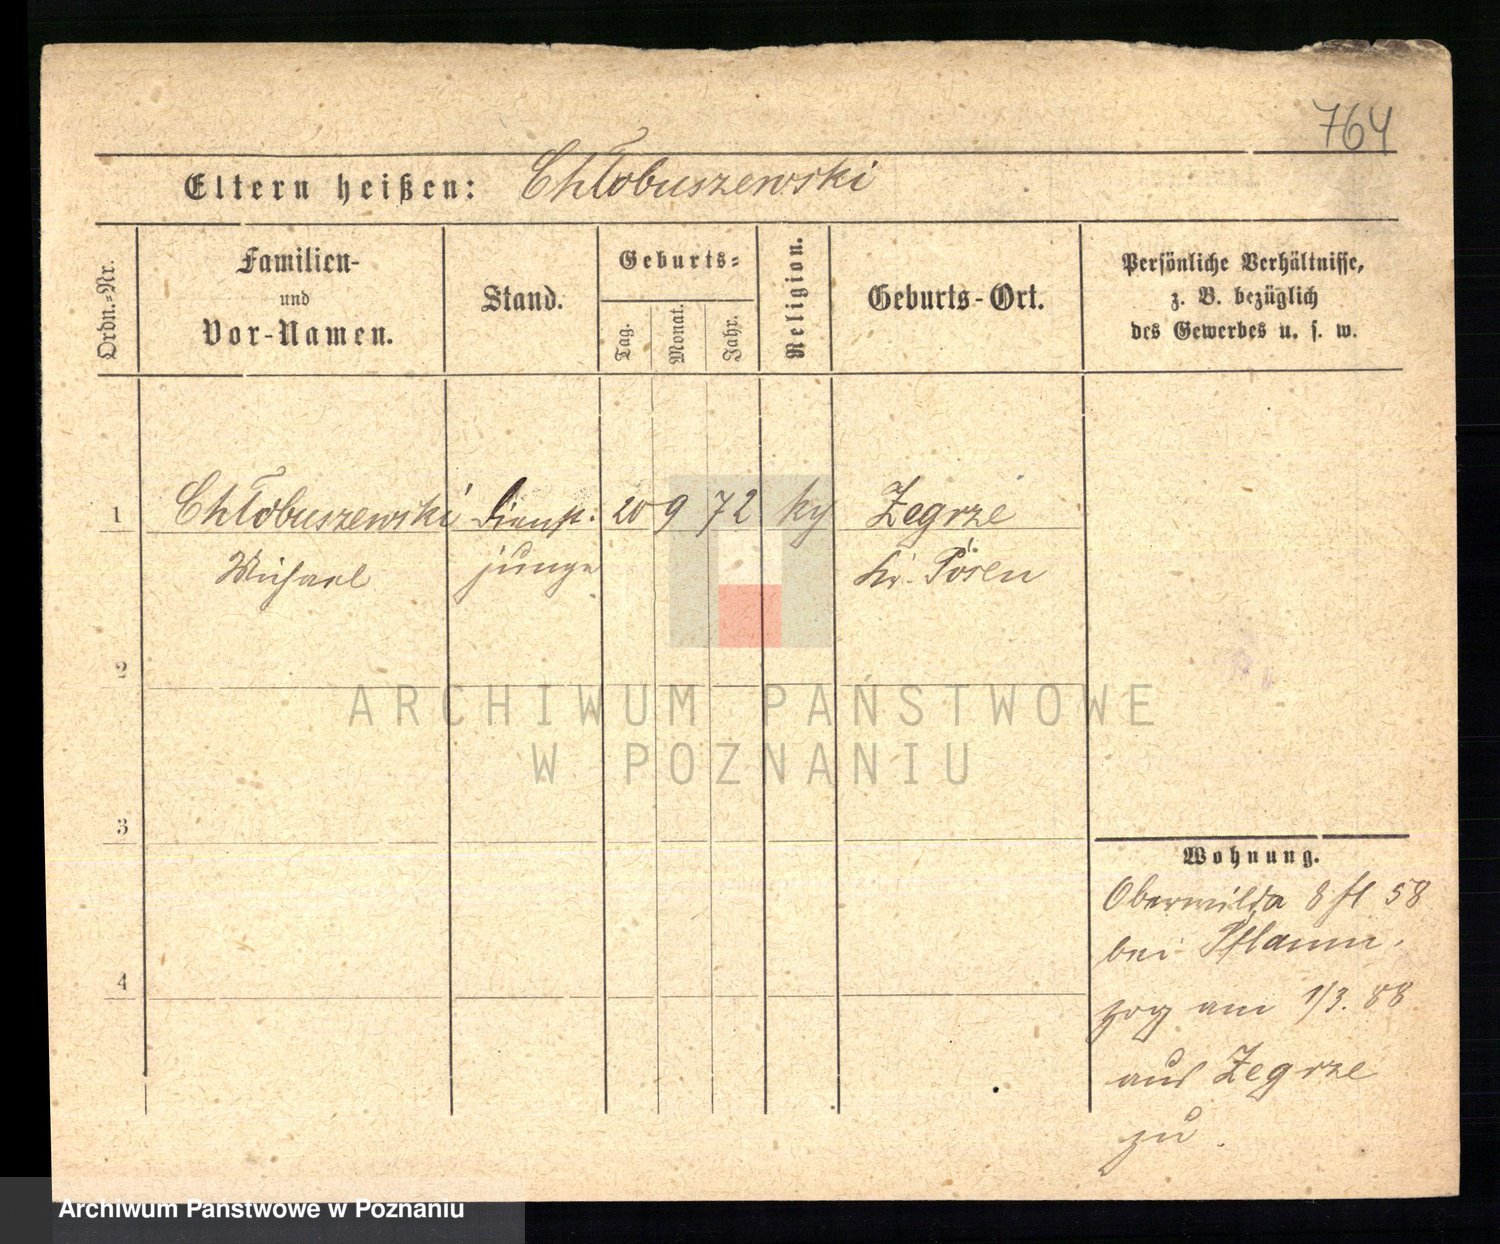 764
Eltern heißen: Chłobuszewski
Ordn.=Nr.
Familien-
und
Vor-Namen.
Stand.
Geburts=
Tag.
Monat.
Jahr.
Religion.
Geburts-Ort.
Persönliche Verhältnisse,
z. B. bezüglich
des Gewerbes u. s. w.
1 Chłobuszewski Dienst. 20 9 72 Zegrze
Michael junge Kr. Posen
2
3
4
Wohnung.
Oberwilda 58
bei Pflaum.
zog am 1/3. 88
aus Zegrze
zu.
ARCHIWUM PAŃSTWOWE
W POZNANIU
Archiwum Państwowe w Poznaniu